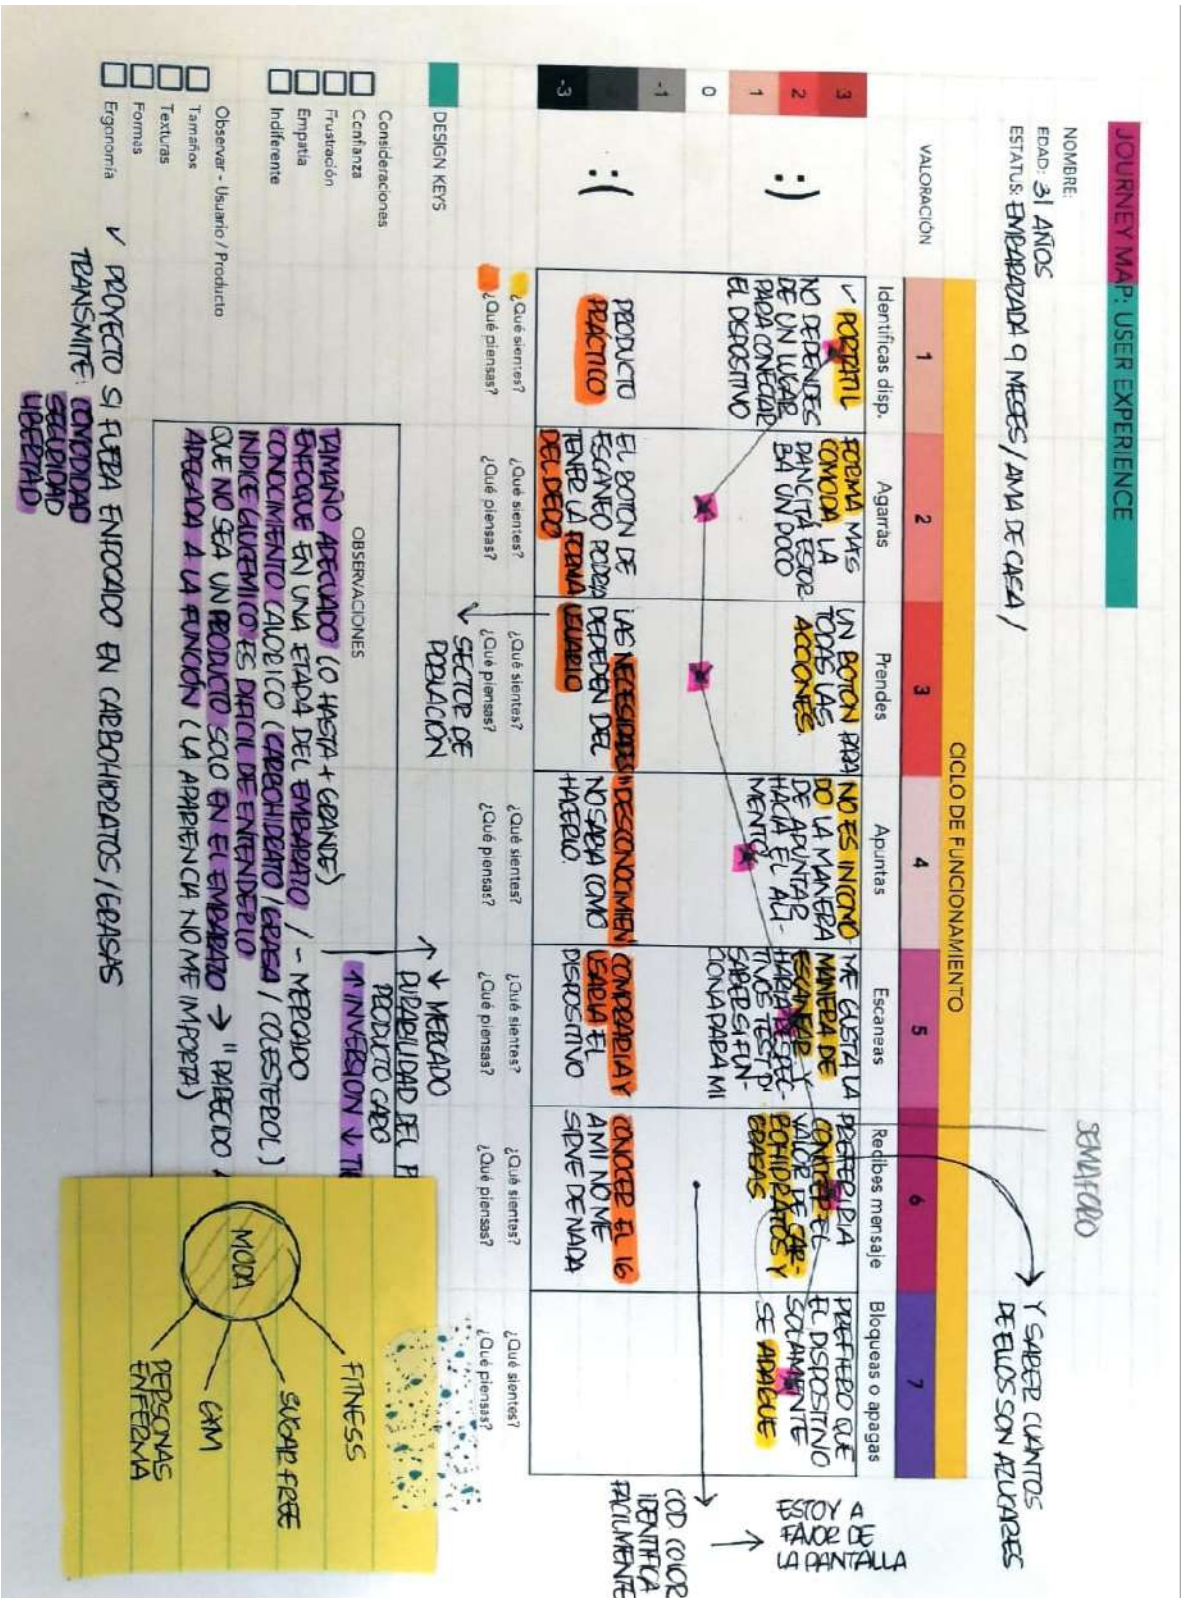 JOURNEY MAP: USER EXPERIENCE
NOMBRE:
EDAD: 31 AÑOS
ESTATUS: EMBARAZADA 9 MESES / AMA DE CASA /
SEMAFORO
Y SABER CUANTOS
DE ELLOS SON AZUCARES
CICLO DE FUNCIONAMIENTO
VALORACIÓN
1
2
3
4
5
6
7
Identificas disp.
Agarras
Prendes
Apuntas
Escaneas
Recibes mensaje
Bloqueas o apagas
3
2
1
0
-1
-3
:)
:(
✓ PORTATIL
NO DEPENDES
DE UN LUGAR
PARA CONECTAR
EL DISPOSITIVO
FORMA MAS
COMODA LA
PANCITA ESTOR-
BA UN POCO
UN BOTON PARA
TODAS LAS
ACCIONES.
NO ES INCOMO
DO LA MANERA
DE APUNTAR
HACIA EL ALI-
MENTO
ME GUSTA LA
MANERA DE
ESCANEAR Y
SABER SI FUN-
CIONA PARA MI
PREFERIRIA
CONOCER EL
VALOR DE CAR-
BOHIDRATOS Y
GRASAS
PREFIERO QUE
EL DISPOSITIVO
SOLAMENTE
SE APAGUE
ESTOY A
FAVOR DE
LA PANTALLA
COD. COLOR
IDENTIFICA
FACILMENTE
PRODUCTO
PRÁCTICO
EL BOTON DE
ESCANEO PODRIA
TENER LA FORMA
DEL DEDO
LAS NECESIDADES
DEPEDEN DEL
USUARIO
SECTOR DE
POBLACIÓN
"DESCONOCIMIEN
NO SABIA COMO
HACERLO.
COMPRARIA Y
USARIA EL
DISPOSITIVO
CONOCER EL 16
A MI NO ME
SIRVE DE NADA
¿Qué sientes?
¿Qué piensas?
¿Qué sientes?
¿Qué piensas?
¿Qué sientes?
¿Qué piensas?
¿Qué sientes?
¿Qué piensas?
¿Qué sientes?
¿Qué piensas?
¿Qué sientes?
¿Qué piensas?
¿Qué sientes?
¿Qué piensas?
DESIGN KEYS
Consideraciones
Confianza
Frustración
Empatía
Indiferente
Observar - Usuario / Producto
Tamaños
Texturas
Formas
Ergonomía
OBSERVACIONES
TAMAÑO ADECUADO (O HASTA + GRANDE)
ENFOQUE EN UNA ETAPA DEL EMBARAZO / - MERCADO
CONOCIMIENTO CALORICO (CARBOHIDRATO / GRASA / COLESTEROL)
INDICE GLUCEMICO ES DIFICIL DE ENTENDERLO
QUE NO SEA UN PRODUCTO SOLO EN EL EMBARAZO → "PARECIDO A
ADECADA A LA FUNCIÓN (LA APARIENCIA NO ME IMPORTA)
↑ ↓ MERCADO
DURABILIDAD DEL P
PRODUCTO CARO
↑ INVERSION ↓ TI
✓ PROYECTO SI FUERA ENFOCADO EN CARBOHIDRATOS / GRASAS
TRANSMITE: COMODIDAD
SEGURIDAD
LIBERTAD
MODA
FITNESS
SUGAR FREE
GYM
PERSONAS
ENFERMA